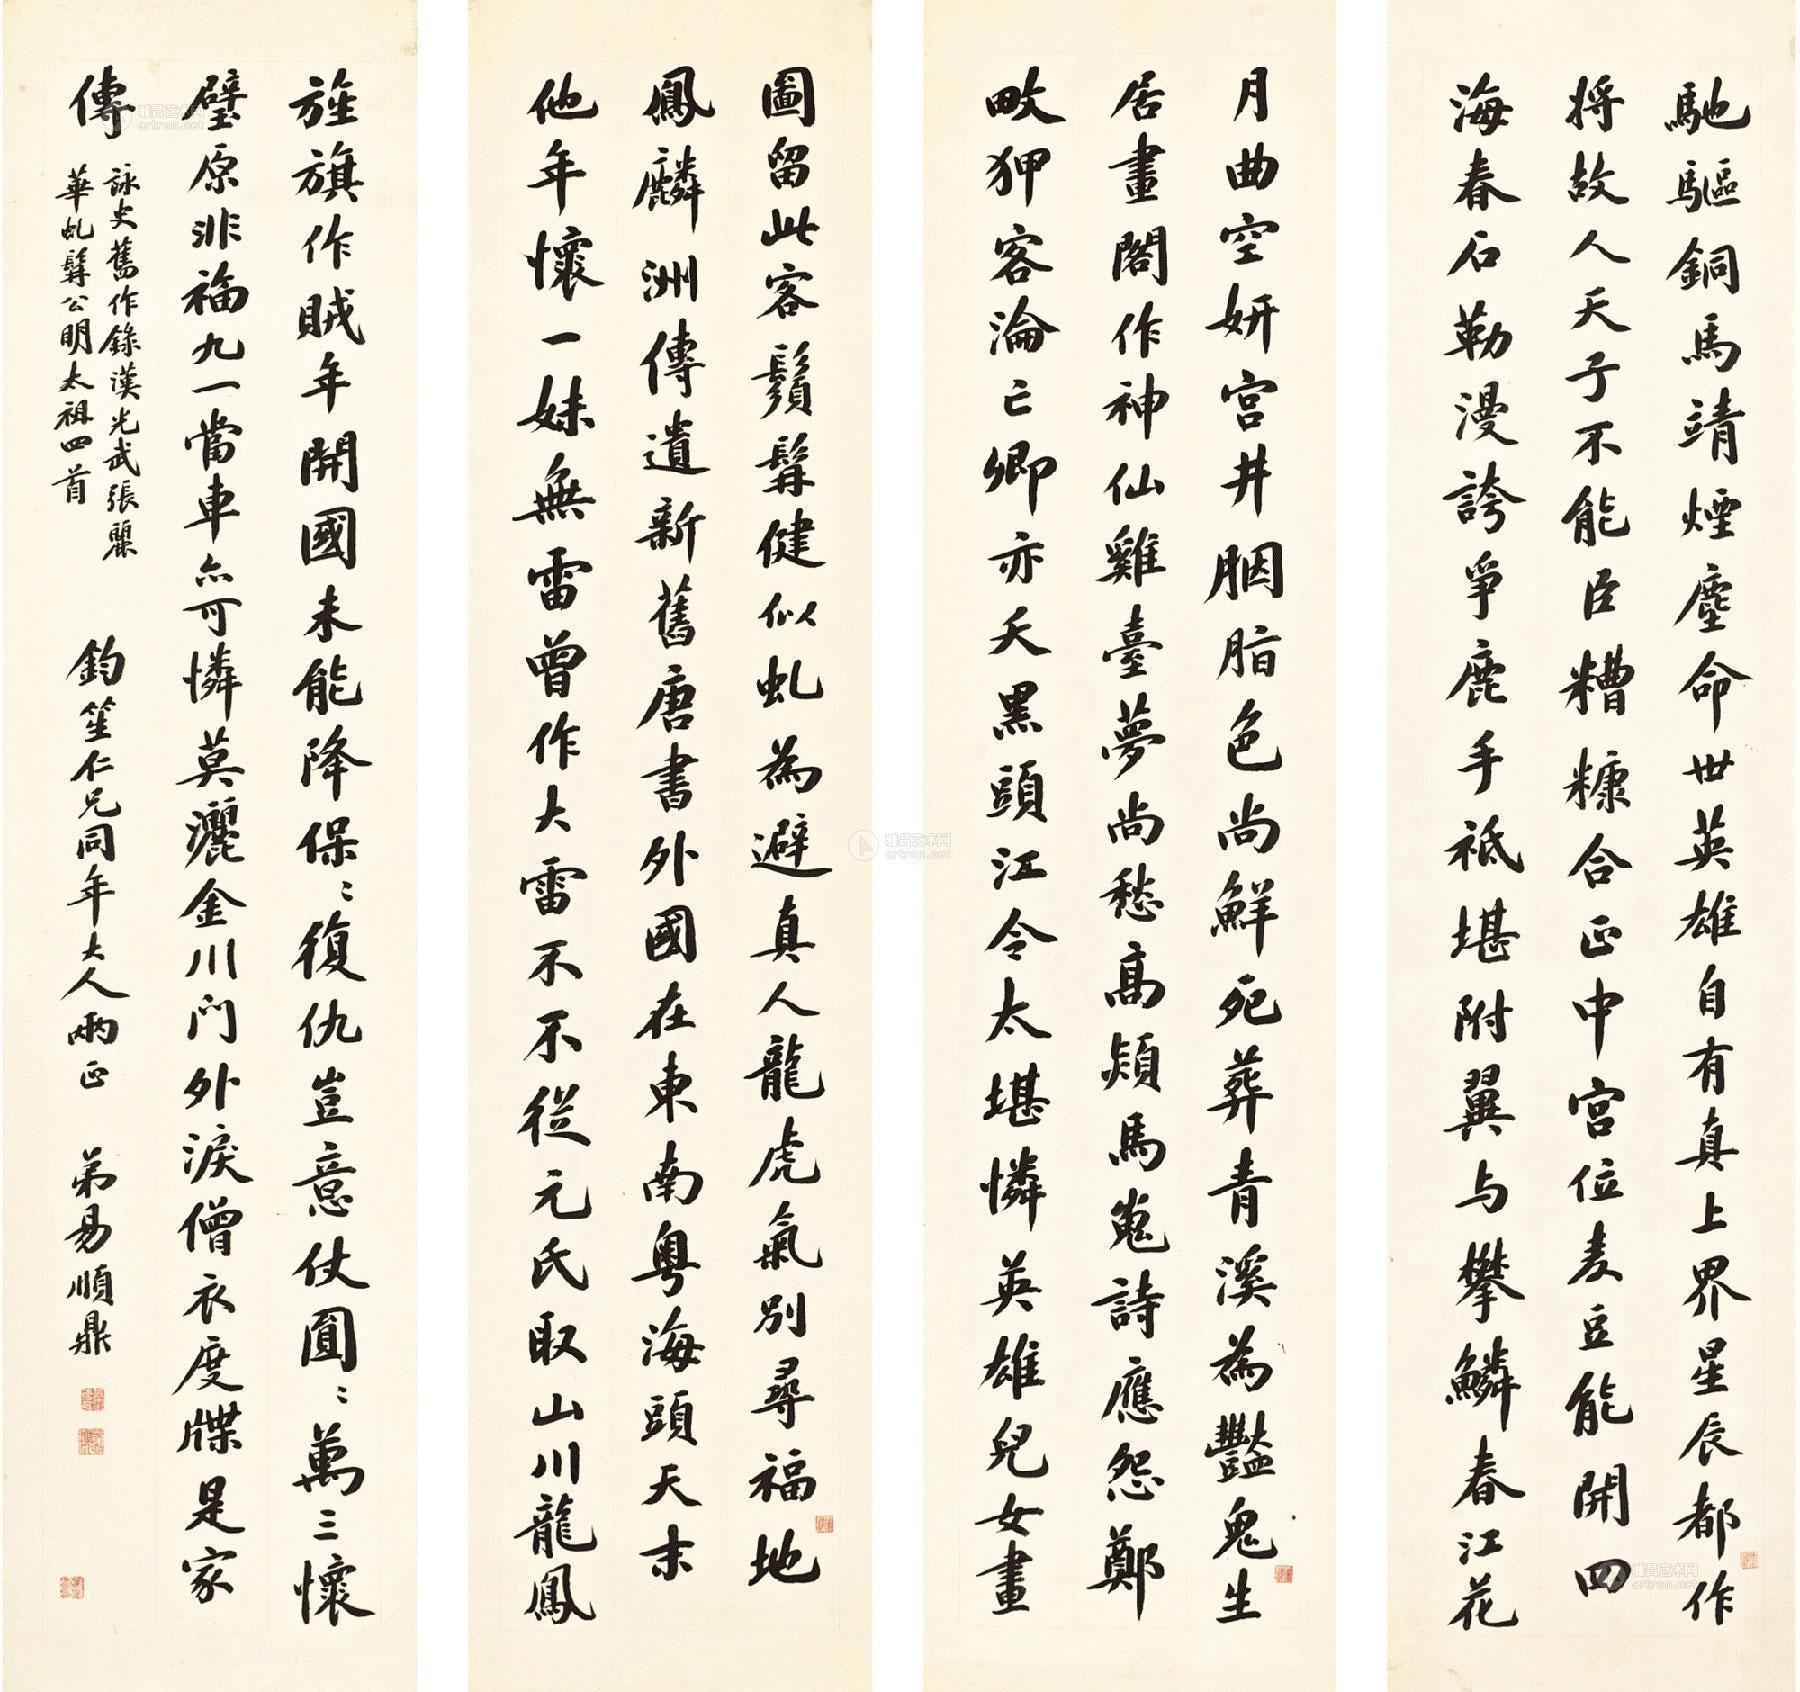 馳驅銅馬靖煙塵命世英雄自有真上界星辰都作
將故人天子不能臣糟糠合正中宮位麦豆能開四
海春石勒漫誇爭鹿手祗堪附翼与攀鱗春江花
月曲空妍宮井胭脂色尚鮮死葬青溪為豔鬼生
居畫閣作神仙雞臺夢尚愁高熲馬嵬詩應怨鄭
畋狎客淪亡卿亦夭黑頭江令太堪憐英雄兒女畫
圖留此客鬚髯健似虬為避真人龍虎氣別尋福地
鳳麟洲傳遺新舊唐書外國在東南粵海頭天末
他年懷一妹無雷曾作大雷不不從元氏取山川龍鳳
旌旗作賊年開國未能降保:復仇豈意仗圓:萬三懷
璧原非福九一當車亦可憐莫灑金川門外淚僧衣度牒是家
傳
詠史舊作錄漢光武張麗
華虬髯公明太祖四首
鈞笙仁兄同年大人兩正 弟易順鼎
雅昌艺术网
artron.net